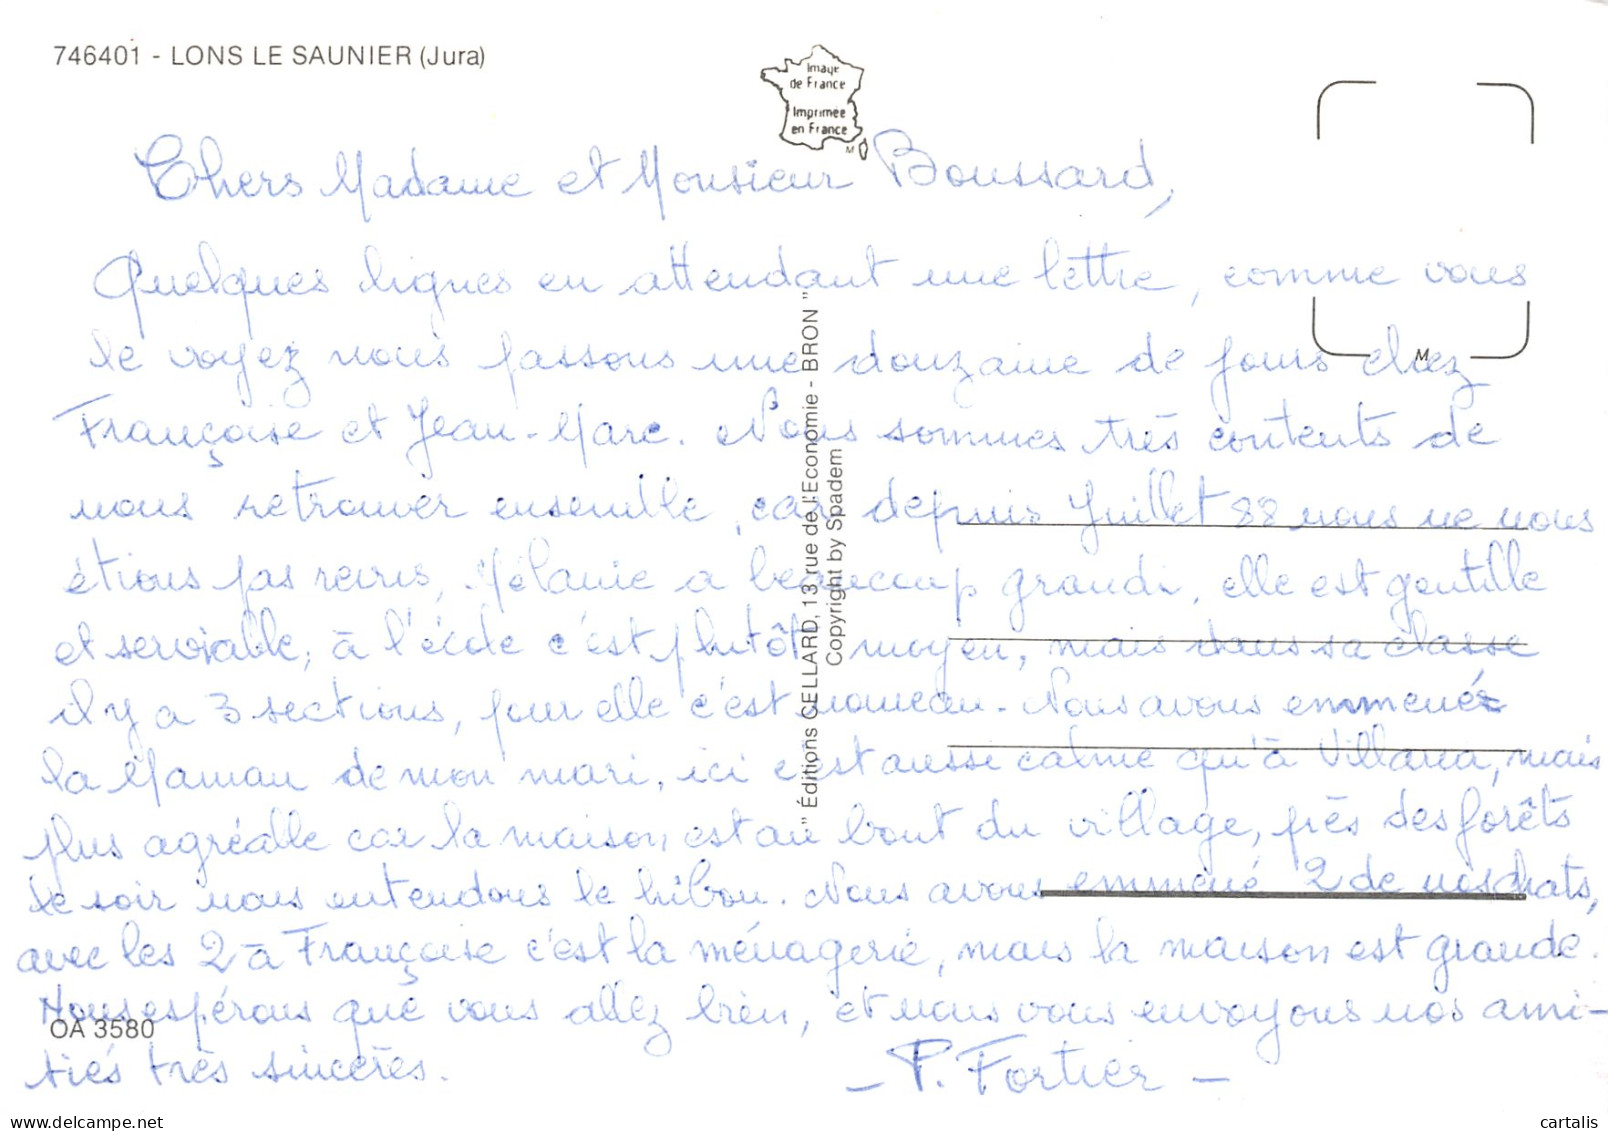 746401 - LONS LE SAUNIER (Jura)
Image
de France
Imprimée
en France
M
Chers Madame et Monsieur Boussard,
Quelques lignes en attendant une lettre, comme vous
le voyez nous passons une douzaine de jours chez
M
Françoise et Jean-Marc. Nous sommes très contents de
nous retrouver ensemble, car depuis Juillet 88 nous ne nous
étions pas revus, Mélanie a beaucoup grandi, elle est gentille
et serviable, à l'école c'est plutôt moyen, mais dans sa classe
il y a 3 sections, pour elle c'est nouveau. Nous avons emmené
la Maman de mon mari, ici c'est aussi calme qu'à mais
plus agréable car la maison est au bout du village, près des forêts
le soir nous entendons le hibou. Nous avons emmené 2 de nos chats,
avec les 2 à Françoise c'est la ménagerie, mais la maison est grande.
Nous espérons que vous allez bien, et nous vous envoyons nos ami-
tiés très sincères. - P. Fortier -
OA 3580
" Éditions CELLARD, 13 rue de l'Economie - BRON "
Copyright by Spadem
www.delcampe.net
cartalis